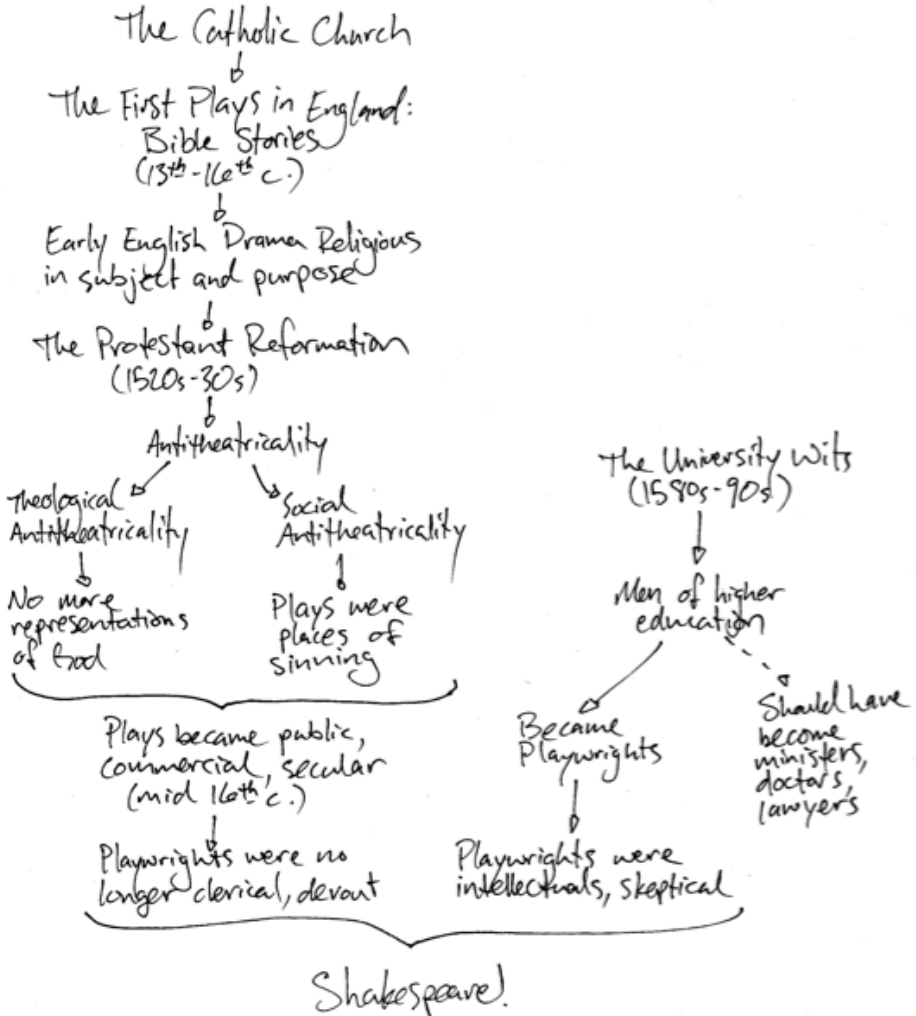 The Catholic Church
The First Plays in England:
Bible Stories
(13th-16th c.)
Early English Drama Religious
in subject and purpose
The Protestant Reformation
(1520s-30s)
Antitheatricality
Theological
Antitheatricality
Social
Antitheatricality
No more
representations
of God
Plays were
places of
sinning
Plays became public,
commercial, secular
(mid 16th c.)
Playwrights were no
longer clerical, devout
The University Wits
(1580s-90s)
Men of higher
education
Became
Playwrights
Should have
become
ministers,
doctors,
lawyers
Playwrights were
intellectuals, skeptical
Shakespeare!